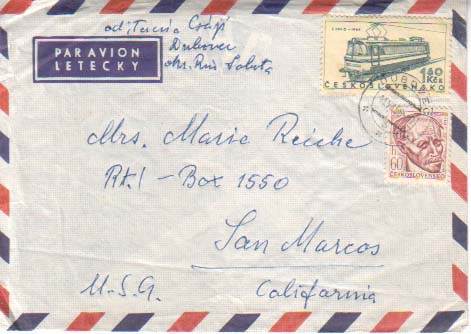 PAR AVION
LETECKY
od: Terezia
Dubovec
okr. Rim Sobota
1.60
Kčs
ČESKOSLOVENSKO
60
ČESKOSLOVENSKO
Mrs. Marie Reiche
Rt. 1 - Box 1550
San Marcos
U.S.A. California